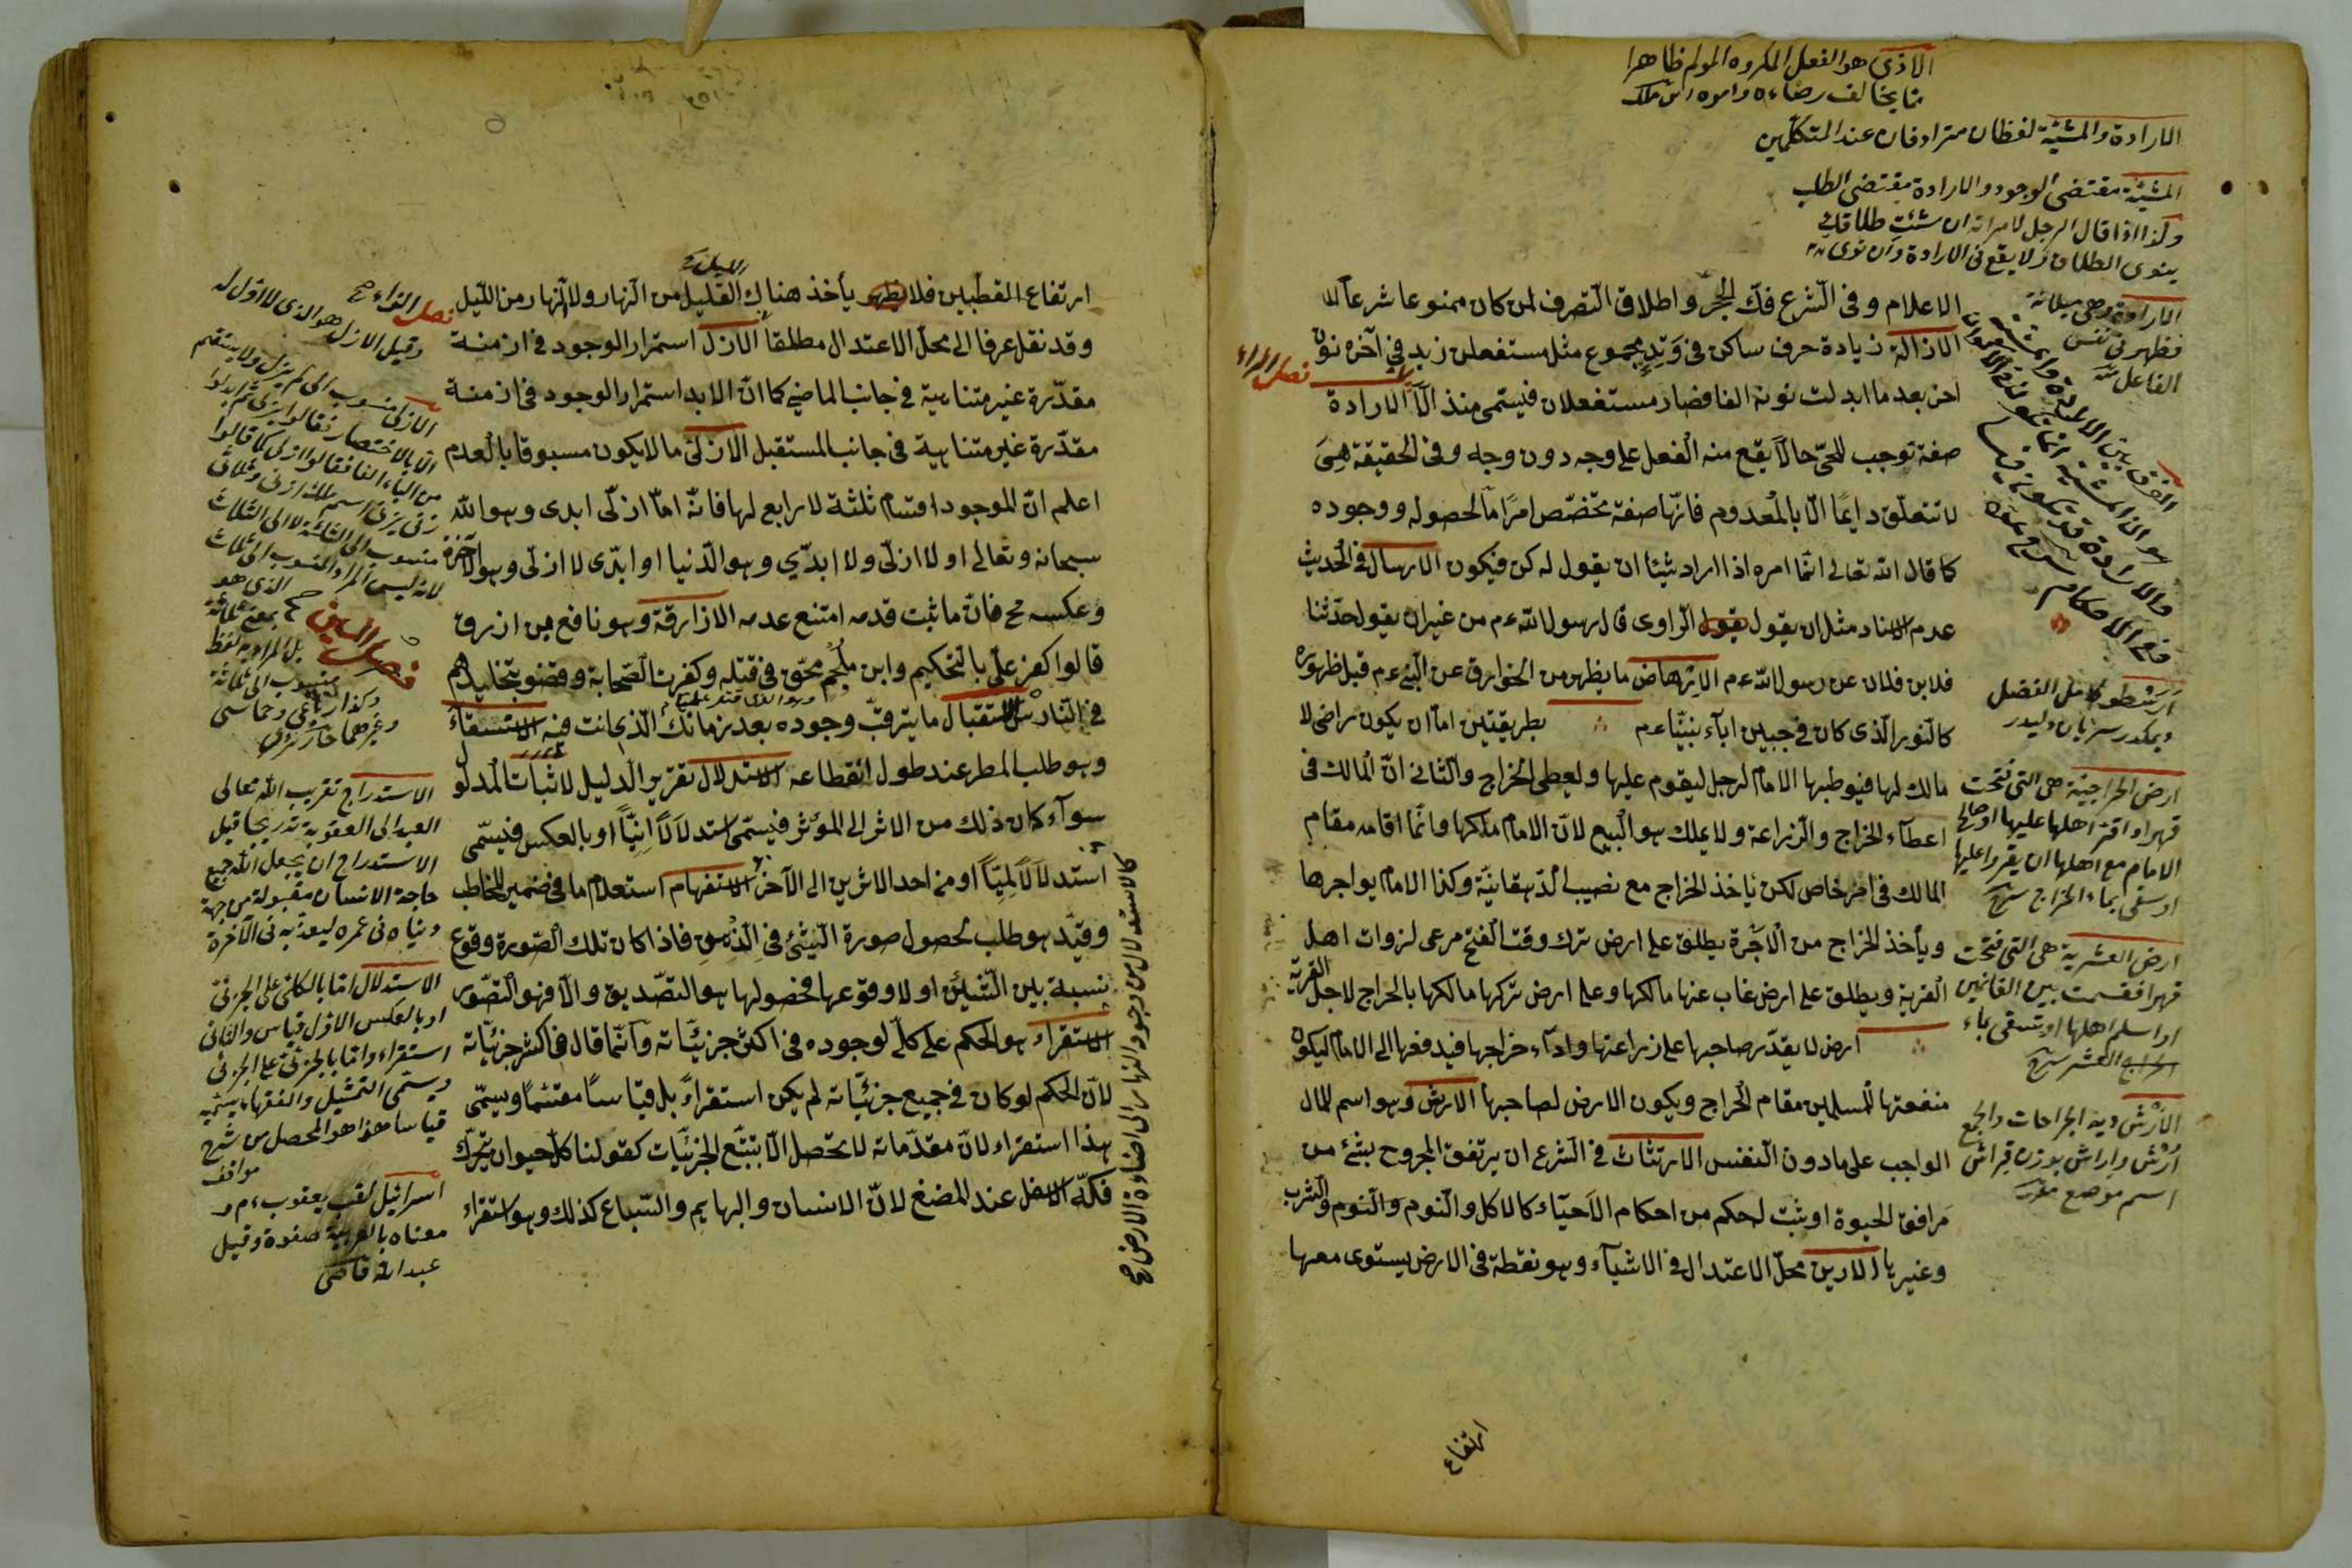 الاذى هو الفعل المكروه المولم ظاهرا
مما يخالف رضاءه وامره ابن ملك
الارادة والمشيّة لفظان مترادفان عند المتكلّمين
المشيّة مقتضى الوجود والارادة يقتضى الطلب
وكذا اذا قال الرجل لامراته ان شئت طلاقك
ينوى الطلاق ولا يقع فى الارادة وان نوى
الاعلام وفى الشرع فكّ الحجر واطلاق التصرف لمن كان ممنوعا شرعا
الاذالة زيادة حرف ساكن فى وتد مجموع مثل مستفعلن زيد فى آخره نون
اخر بعد ما ابدلت نونه الفا فصار مستفعلان فيسمى مذالا الارادة
صفة توجب للحىّ حالا يقع منه الفعل على وجه دون وجه وفى الحقيقة هى
لا تتعلّق دايمًا الّا بالمعدوم فانّها صفة تخصّص امرًا ما لحصوله ووجوده
كما قال الله تعالى انّما امره اذا اراد شيئا ان يقول له كن فيكون الارسال فى الحديث
عدم الاسناد مثل ان يقول الراوى قال رسول الله ءم من غير ان يقول حدّثنا
فلان بن فلان عن رسول الله ءم الارهاص ما يظهر من الخوارق عن النبى ءم قبل ظهوره
كالنور الذى كان فى جبين اباء نبيّنا ءم بطريقتين امّا ان يكون اراضى لا
مالك لها فيوطيها الامام لرجل ليقوم عليها ويعطى الخراج والثانى انّ المالك فى
اعطاء الخراج والزراعة ولا يملك هو البيع لانّ الامام ملكها وانّما اقامه مقام
المالك فى امر خاص لكن ياخذ الخراج مع نصيب الدهقانيّة وكذا الامام يواجرها
وياخذ الخراج من الاجرة يطلق على ارض ترك وقت الفتح مرعى لزوات اهل
القرية ويطلق على ارض غاب عنها مالكها وعلى ارض تركها مالكها بالخراج لاجل القرية
ارض لا يقدر صاحبها على زراعتها واداء خراجها فيدفعها الى الامام ليكون
منفعتها للمسلمين مقام الخراج ويكون الارض لصاحبها الارش وهو اسم للمال
الواجب على ما دون النفس الارتثاث فى الشرع ان يرتفق المجروح بشئ من
مرافق الحيوة او يثبت له حكم من احكام الاحياء كالاكل والنوم والنوم والشرب
وغيرها الارين محلّ الاعتدال فى الاشياء وهو نقطة فى الارض يستوى معها
ارتفاع
فصل الراء
الارادة وهى ميلانة
فظهر فى نفس
الفاعل
الفرق بين الارادة والمشية
ارسطو كامل الفضل
ارض الخراجيّة هى التى فتحت
قهرا واقرّ اهلها عليها او صالح
الامام مع اهلها ان يقروا عليها
او سقى بماء الخراج شرح
ارض العشرية هى التى فتحت
قهرا فقسمت بين الغانمين
او اسلم اهلها او تسقى بماء
العشر شرح
الارش دية الجراحات والجمع
اروش واراش بوزن فراش
اسم موضع
ارتفاع القطبين فلا يظهر يأخذ هناك الليل القليل من النهار ولا النهار من الليل
وقد نقل عرفا الى محلّ الاعتدال مطلقا الازل استمرار الوجود فى ازمنة
مقدّرة غير متناهية فى جانب الماضى كما انّ الابد استمرار الوجود فى ازمنة
مقدّرة غير متناهية فى جانب المستقبل الازلى ما لا يكون مسبوقا بالعدم
اعلم انّ الموجود اقسام ثلثة لا رابع لها فانّه امّا ازلّى ابدى وهو الله
سبحانه وتعالى او لا ازلّى ولا ابدّي وهو الدّنيا او ابدّى لا ازلّى وهو الآخرة
وعكسه مح فانّ ما ثبت قدمه امتنع عدمه الازارقة وهو نافع بن ازرق
قالوا كفر علىّ بالتحكيم وابن ملجم محقّ فى قتله وكفرت الصّحابة وقضو بتخليدهم
فى النار الاستقبال ما يترقّب وجوده بعد زمانك الذى انت فيه الاستسقاء
وهو طلب المطر عند طول انقطاعه الاستدلال تقرير الدليل لاثبات المدلول
سوآء كان ذلك من الاثر الى المؤثر فيسمّى استدلالًا انيًّا او بالعكس فيسمّى
استدلالًا لميًّا او من احد الاثرين الى الآخر الاستفهام استعلام ما فى ضمير المخاطب
وقيّد هو طلب لحصول صورة الشئ فى الذهن فاذا كان تلك الصورة وقوع
نسبة بين الشيئين او لا وقوعها فحصولها هو التصديق والّا فهو التصوّر
الاستقراء هو الحكم على كلّى لوجوده فى اكثر جزئيّاته وانّما قال فى اكثر جزئيّاته
لانّ الحكم لو كان فى جميع جزئيّاته لم يكن استقراءً بل قياسًا مقسّمًا ويسمّى
هذا استقراء لانّ مقدّماته لا تحصل الّا بتتبّع الجزئيّات كقولنا كلّ حيوان يتحرّك
فكّه الاسفل عند المضغ لانّ الانسان والبهايم والسّباع كذلك وهو استقراء
فصل الزاء
وقيل الازل هو الذى لا اول له
الازلى منسوب الى لم يزل ولا يستقيم
الّا بالاختصار فقالوا يزلى ثم ابدلوا
من الياء الفا فقالوا ازلى كما قالوا
فصل السين
الاستدراج تقريب الله تعالى
العبد الى العقوبة تدريجا قيل
الاستدراج ان يجعل الله جميع
حاجة الانسان مقبولة من جهة
دنياه فى عمره ليعذبه فى الآخرة
الاستدلال امّا بالكلّى على الجزئى
او بالعكس الاول قياس والثانى
استقراء وامّا بالجزئى على الجزئى
ويسمّى التمثيل والفقهاء يسمّيه
قياسا هذا هو المحصل من شرح
مواقف
اسرائيل لقب يعقوب ءم و
معناه بالعربية صفوة وقيل
عبد الله قاضى
كالاستدلال من وجود النهار الى اضاءة الارض